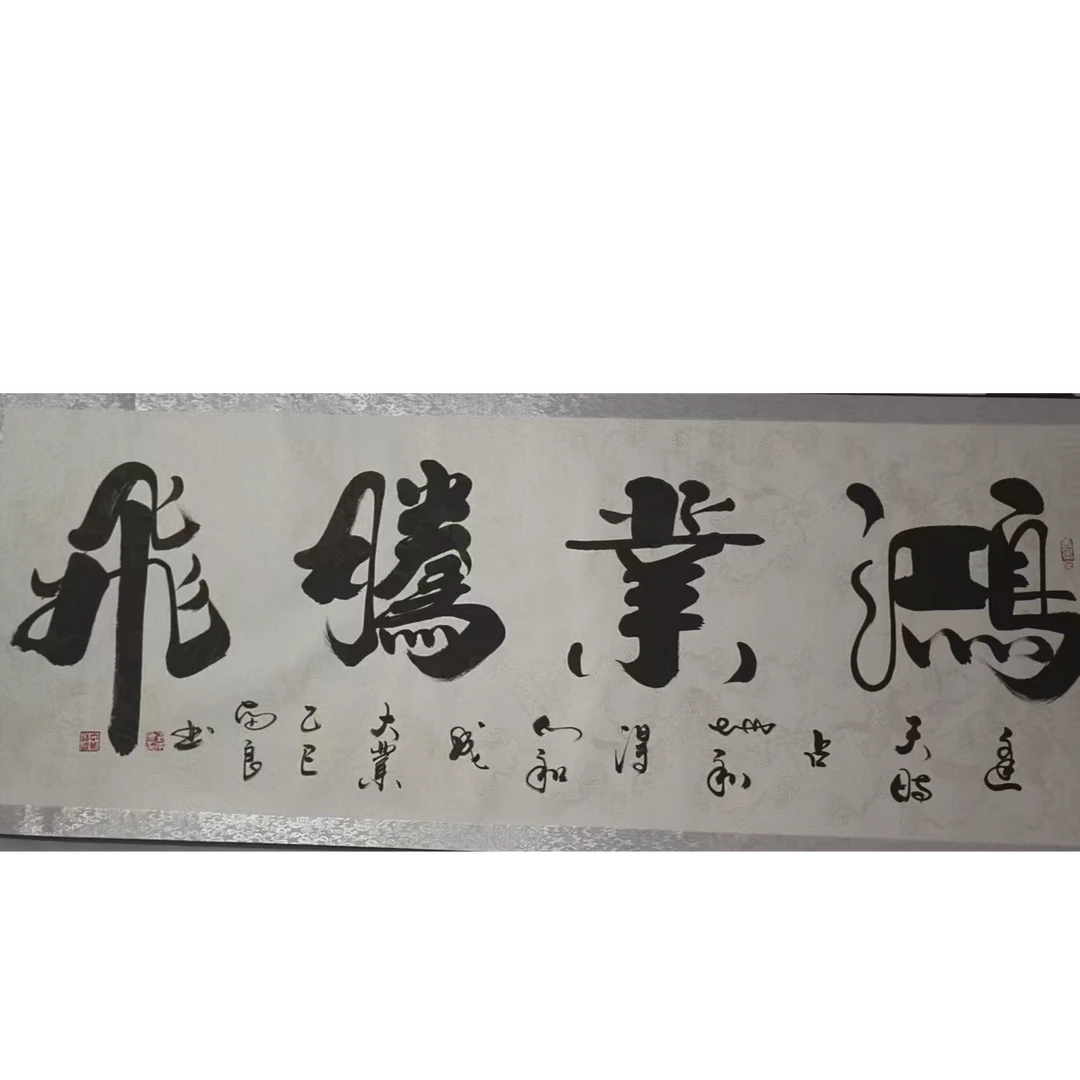 鴻業騰飛
逢天時占地利得人和成大業乙巳良书